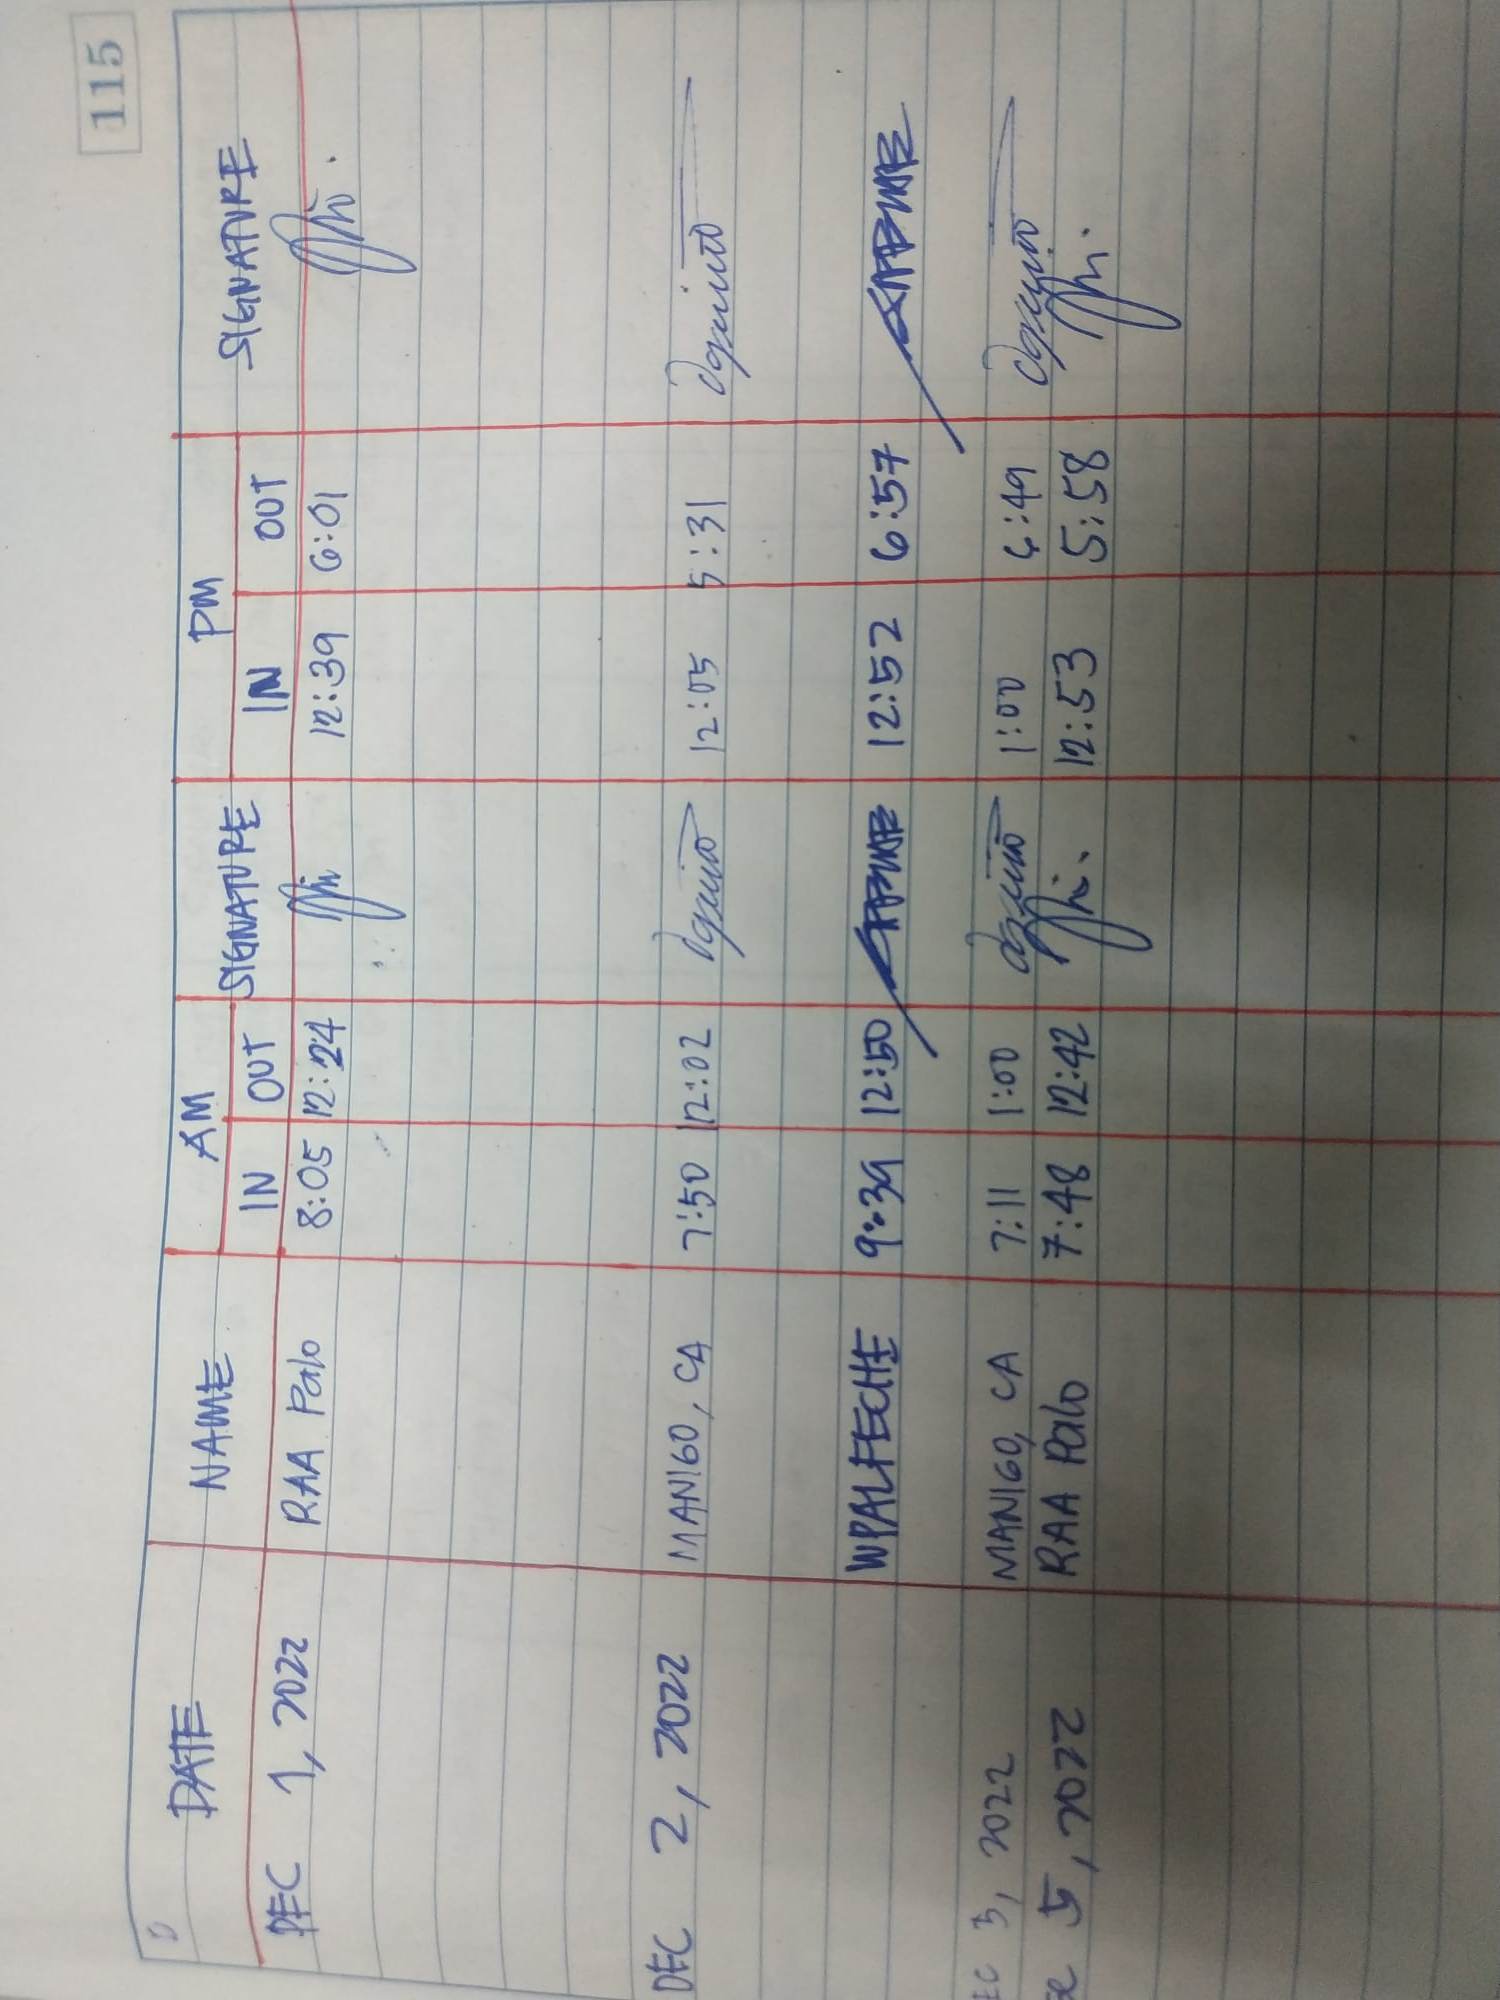 115
DATE NAME AM SIGNATURE PM SIGNATURE
IN OUT IN OUT
DEC 1, 2022 RAA Palo 8:05 12:24 12:39 6:01
DEC 2, 2022 MANIGO, CA 7:50 12:02 12:05 5:31
WPALFECHE 9:39 12:50 12:52 6:57
EC 3, 2022 MANIGO, CA 7:11 1:00 1:00 6:49
5, 2022 RAA Palo 7:48 12:42 12:53 5:58